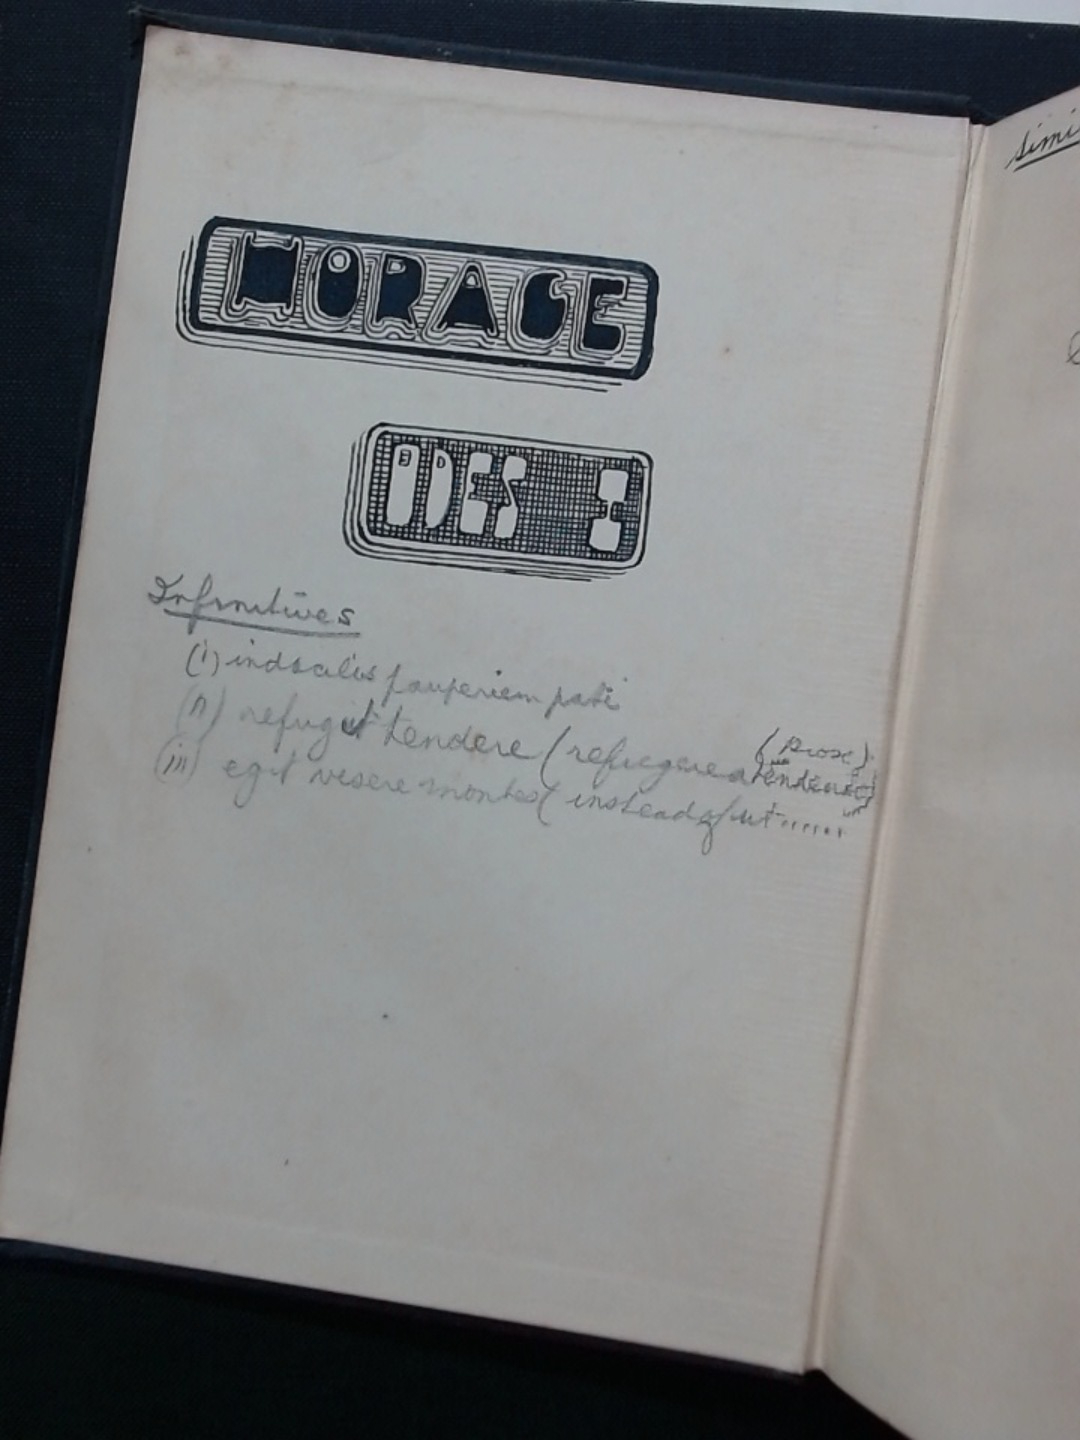 HORACE
ODES I
Infinitives
(i) indocilis pauperiem pati
(ii) refugit tendere (refugere a
(Prose).
(iii) egit visere montes (instead of ut ......
simi